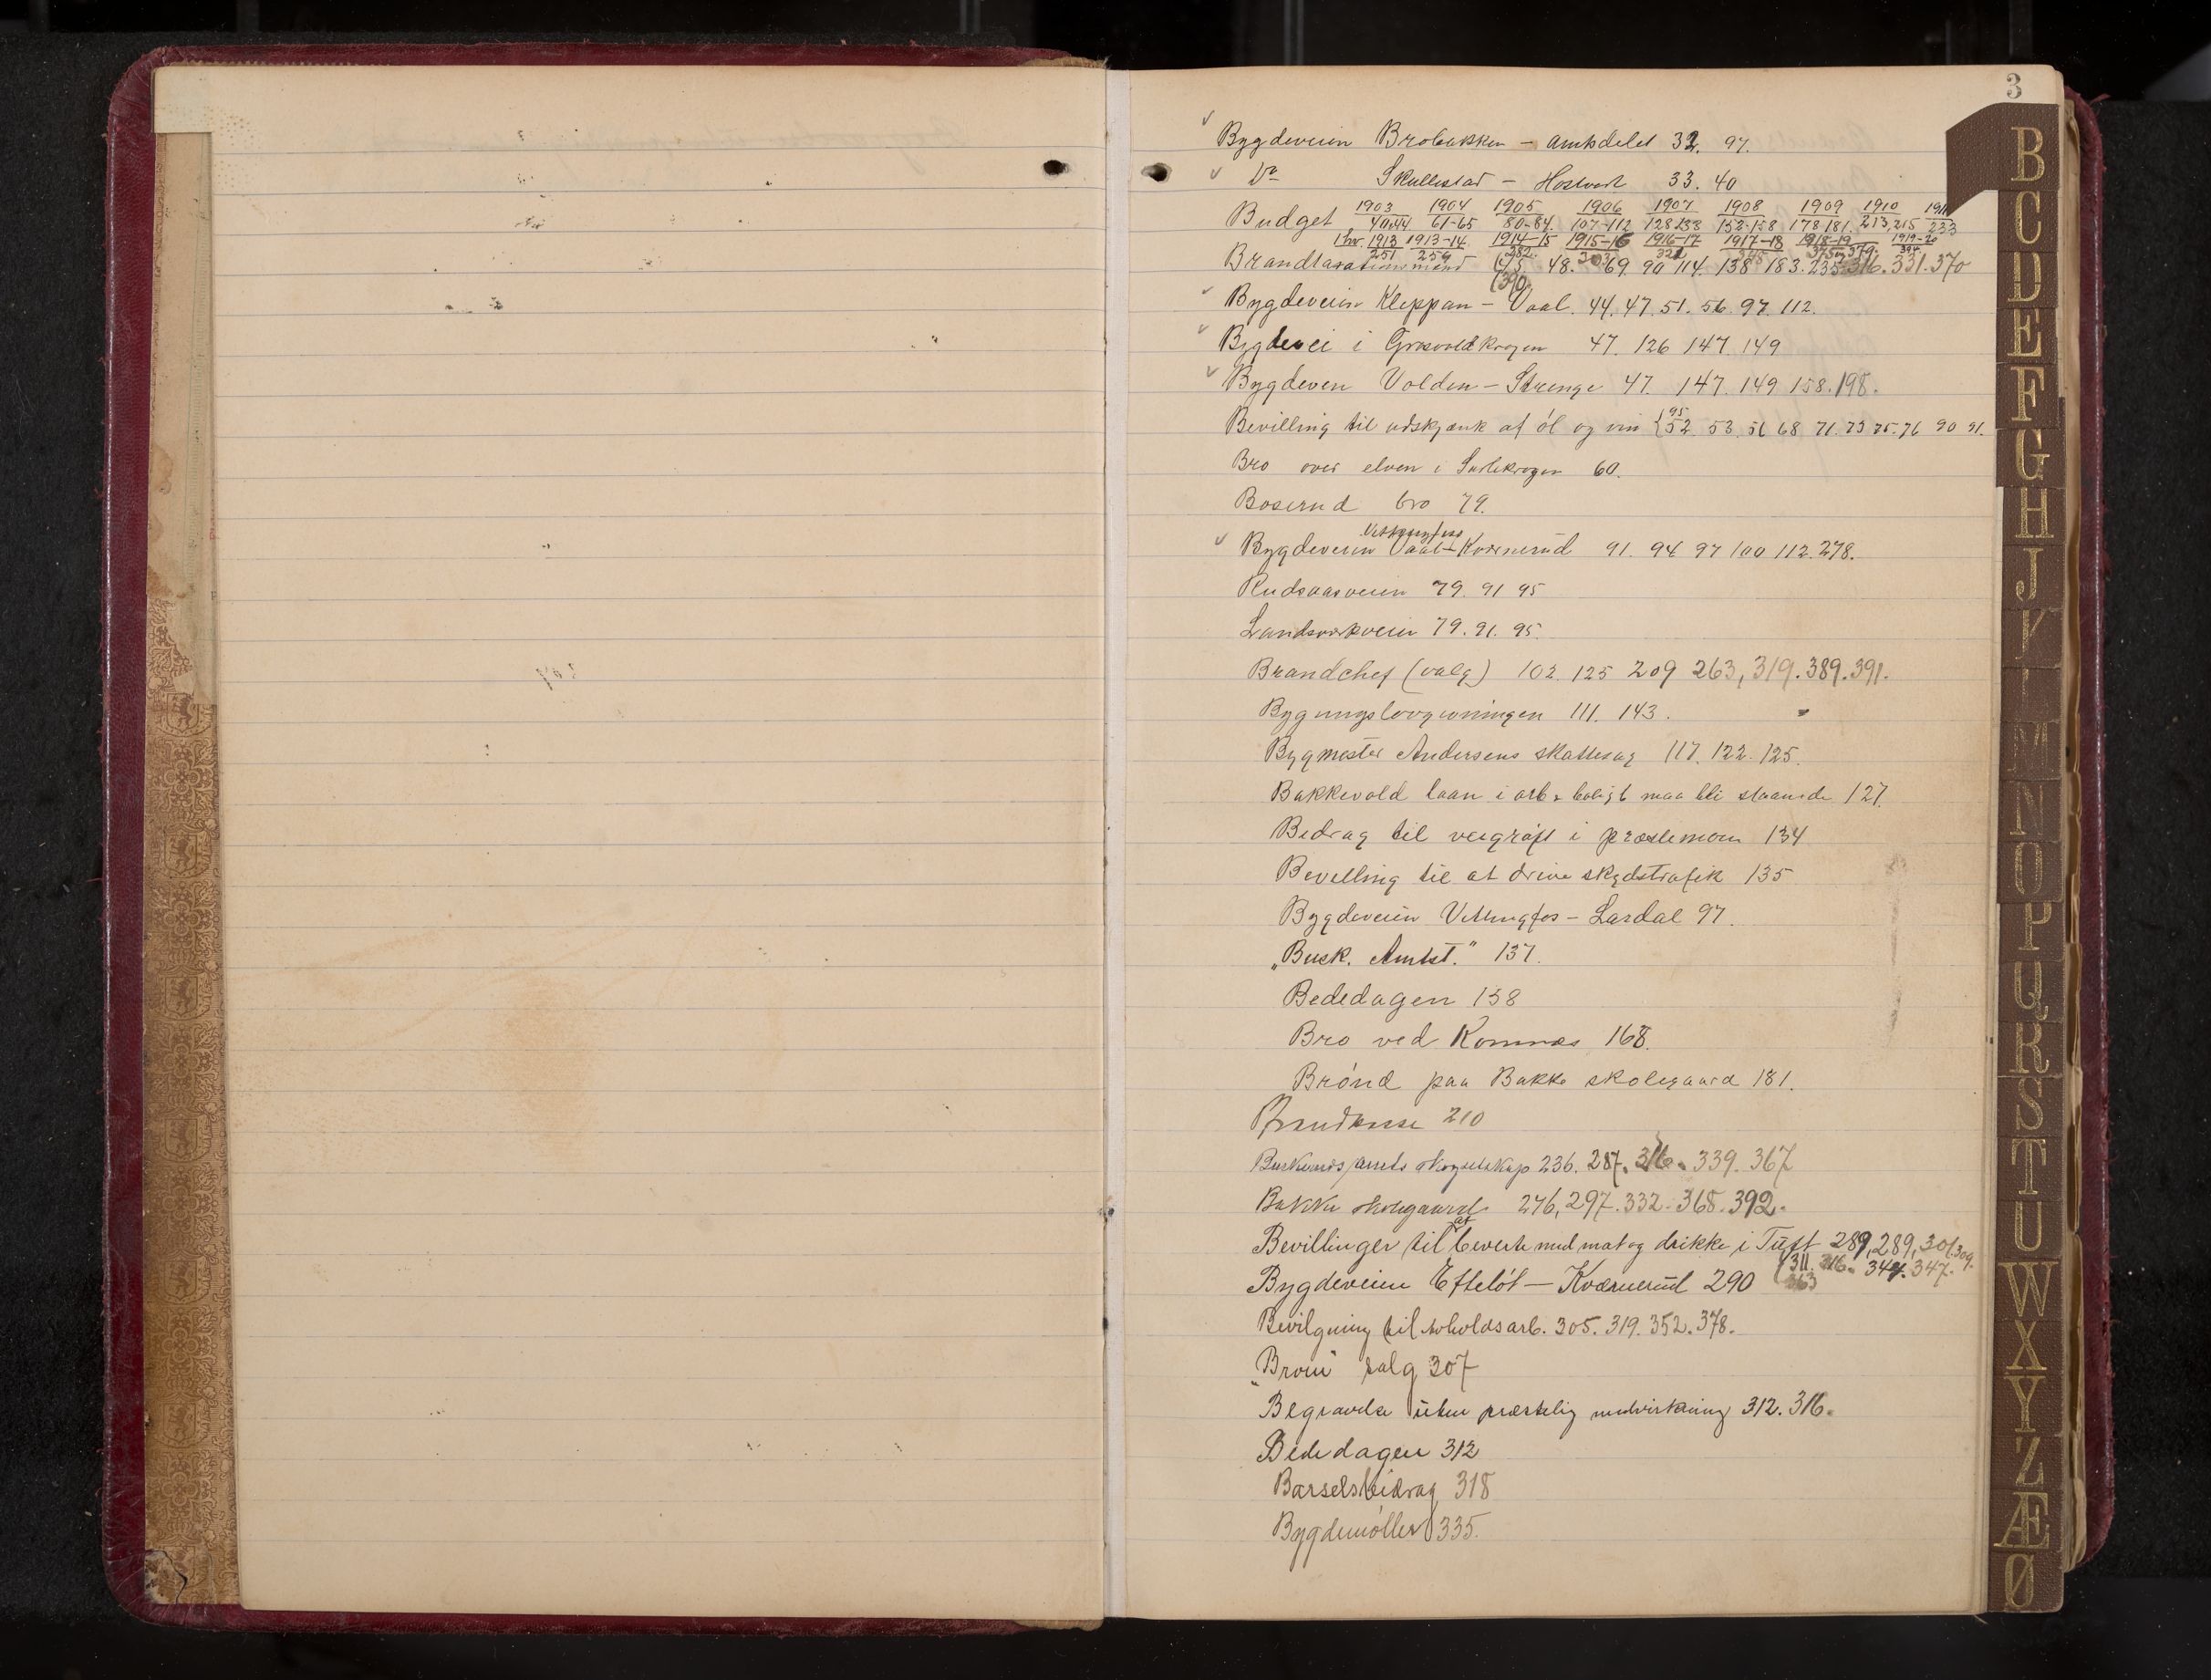 3
Bygdeveien Brobakken - amtsdelet 32. 97.
Do Skullestad - Hostvedt 33. 40
1903 1904 1905 1906 1907 1908 1909 1910
Budget 40,44 61-65 80-84. 107-112 128 138 152-158 178-181. 213,215 233
1 hv. 1913 1913-14 1914-15 1915-16 1916-17 1917-18 1918-19 1919-20
251 259 282. 303 321 345 375, 379. 394
Brandtaxationsmænd (45. 48. 69. 90 114. 138 183. 235. 316. 331. 370
(390.
Bygdeveien Kleppan - Vaal. 44. 47. 51. 56. 97. 112.
Bygdevei i Grosvoldkrogen 47. 126 147. 149
Bygdeven Volden - Strenge 47. 147. 149 158. 198.
95
Bevilling til udskjænk af øl og vin {52. 53. 56 68 71. 73 75. 76 90 91.
Bro over elven i 60.
Boserud bro 79.
Vittingfoss
Bygdeveien Vaal - Kværnerud 91. 94 97 100 112. 278.
Rudsaasveien 79. 91 95
Landsverkveien 79. 91. 95.
Brandchef (valg) 102. 125 209 263, 319. 389. 391.
Bygningslovgivningen 111. 143.
Bygmester Andersens skattesag 117. 122. 125.
Bakkevold laan i arb. & boligb maa bli staaende 127.
Bidrag til veigrøft i præstemoen 134
Bevilling til at drive skydstrafik 135
Bygdeveien Vittingfos - Lardal 97.
„Busk. Amtst." 137.
Bededagen 138
Bro ved Komnæs 168.
Brønd paa Bakke skolegaard 181.
Brandkasse 210
Buskeruds amts skogselskap 236. 287. 316. 339. 367
Bakke skolegaard 276, 297. 332. 368. 392.
at
Bevillinger til beverte med mat og drikke i Tuft 289, 289, 301. 309.
(311. 316. 344. 347.
363
Bygdeveien Efteløt - Kværnerud 290
Bevilgning til avholdsarb. 305. 319. 352. 378.
„Broen" salg 307
Begravelse uten præstelig medvirkning 312. 316.
Bededagen 312
Barselsbidrag 318
Bygdemøller 335.
B
C
D
E
F
G
H
J
K
L
M
N
O
P
Q
R
S
T
U
W
X
Y
Z
Æ
Ø